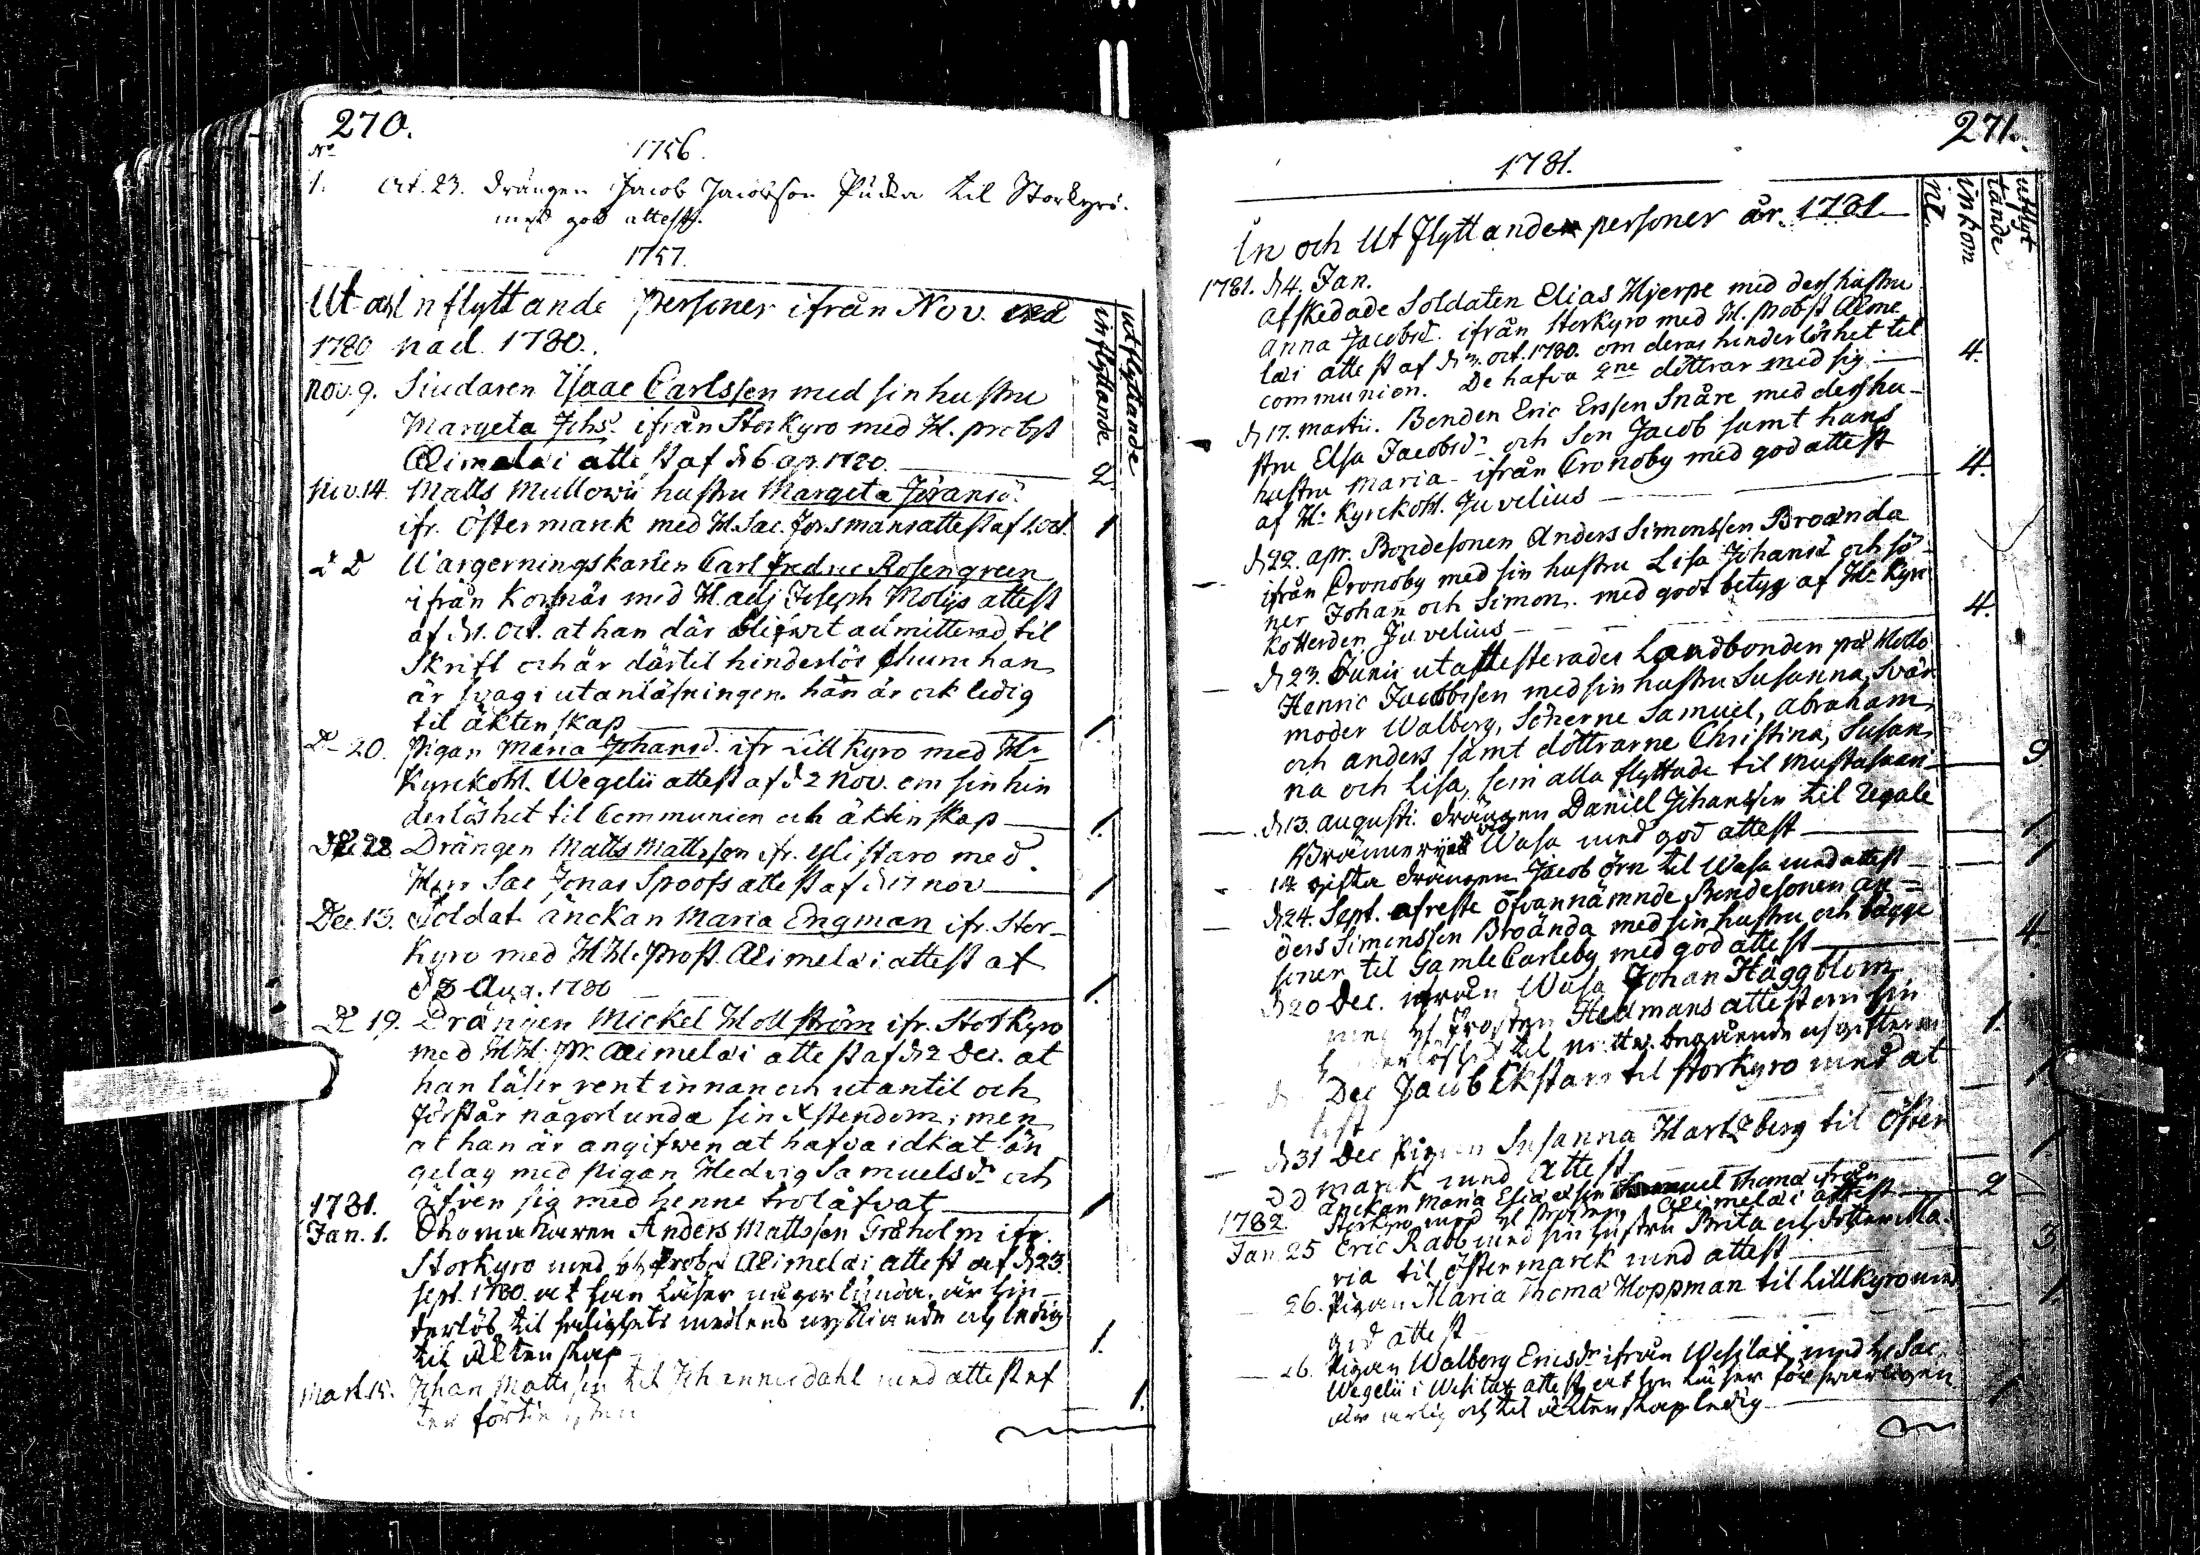 270.
No
1756.
1. Oct. 23. Drängen Jacob Jacobsson til Storkyro.
med god attest.
1757.
Ut och Inflyttande Personer ifrån Nov.
utflyttande
inflyttande
1780 nad. 1780.
Nov. 9. Isaac Carlssen med sin hustru
Margeta Johsd. ifrån Storkyro med H. probst
Æimelæi attest af d 6 ap. 1780. 2
Nov. 14. Matts hustru Margeta Jöransd.
ifr. Östermark med H. Sac. Forsmans attest af 1. Oct. 1
D D Wargerningskarlen Carl Fredric Rosengreen
ifrån Korsnäs med H. adj Joseph attest
af d 1. Oct. at han där blifwit admitterad til
Skrift och är därtil hinderlös ehuru han
är svag i utanläsningen. han är ock ledig
til äktenskap 1.
D 20. Pigan Maria Johansd. ifr Lillkyro med Hr
Kyrckoh. Wegelii attest af d 2 Nov. om sin hin
derlöshet til Communion och äktenskap 1.
22 Drängen Matts Mattssen ifr. Ylistaro med
Herr Sac Jonas Spoofs attest af d 17 nov 1
Dec. 13. Soldat änckan Maria Engman ifr. Stor-
kyro med H H. Prost. Æimelæi attest af
d 3 Aug. 1780 1.
D 19. Drängen Mickel Hollström ifr. Storkyro
med H H. Pr. Æimelæi attest af d 2 Dec. at
han läser rent innan och utantil och
förstår någorlunda sin Xstendom; men
at han är angifwen at hafva idkat sän
gelag med pigan Hedvig Samuelsdr och
1781. äfven sig med henne trolåfvat 1
Jan. 1. Anders Mattssen Gråholm ifr.
Storkyro med H Probst Æimelæi attest af d 23.
sept. 1780. at han läser någorlunda, är hin-
derlös til salighets medlens och ledig
til äktenskap 1.
Mart. 15. Johan Mattssen til Johannisdahl med attest af
ter 1.
271.
1781.
utflyt
tände
inkom
ne.
In och Ut flyttande personer år. 1781.
1781. d 4. Jan.
afskedade Soldaten Elias Hjerpe med dess hustru
Anna Jacobsd. ifrån Storkyro med H. Probst Æime
læi attest af d 3. oct. 1780. om deras hinderlöshet til
communion. De hafva 2ne döttrar med sig 4.
d 17. Martii. Bonden Eric Erssen Snåre med dess hu-
stru Elsa Jacobsdr och Son Jacob samt hans
hustru Maria ifrån Cronoby med god attest
af Hr Kyrckoh. Juvelius 4.
d 22. apr. Bondesonen Anders Simonssen Broända
ifrån Cronoby med sin hustru Lisa Johansd och sö-
ner Johan och Simon. med godt betyg af Hr Kyr
koHerden Juvelius 4.
d 23. Junii utattesterades Landbonden på
Henric Jacobssen med sin hustru Susanna, Svär
moder Walborg, Sönerne Samuel, Abraham
och Anders samt döttrarne Christina, Susan
na och Lisa, som alla flyttade til Mustasaari 9
d 13. augusti. Drängen Daniel Johanssen til
Wasa med god attest 1
gifta drängen Jacob Örn til Wasa med attest 1
d 24. Sept. afreste ofvannämnde Bondesonen An-
ders Simonssen Broända med sin hustru och bägge
söner til Gamle Carleby med god attest 4.
d 20 Dec. ifrån Wasa Johan Häggblom
med H Prosten Hedmans attest om sin
til 1.
d Dec Jacob Ekstam til Storkyro med at
test 1
d 31 Dec Pigan Susanna Hartzberg til Öster
mark med attest 1.
D D änckan Maria Elia Thoma ifrån
1782. Storkyro med H Prosten Æimelæi attest 2
Jan. 25 Eric Rabb med sin hustru Brita och dotter Ma-
ria til Östermarck med attest 3
26. Pigan Maria Thoma Hoppman til Lillkyro med
god attest 1
26. Pigan Walborg Ericsdr ifrån Wesilax med H Sac.
Wegelii i Wesilax attest at hon läser försvarligen
är ärlig och til äktenskap ledig 1